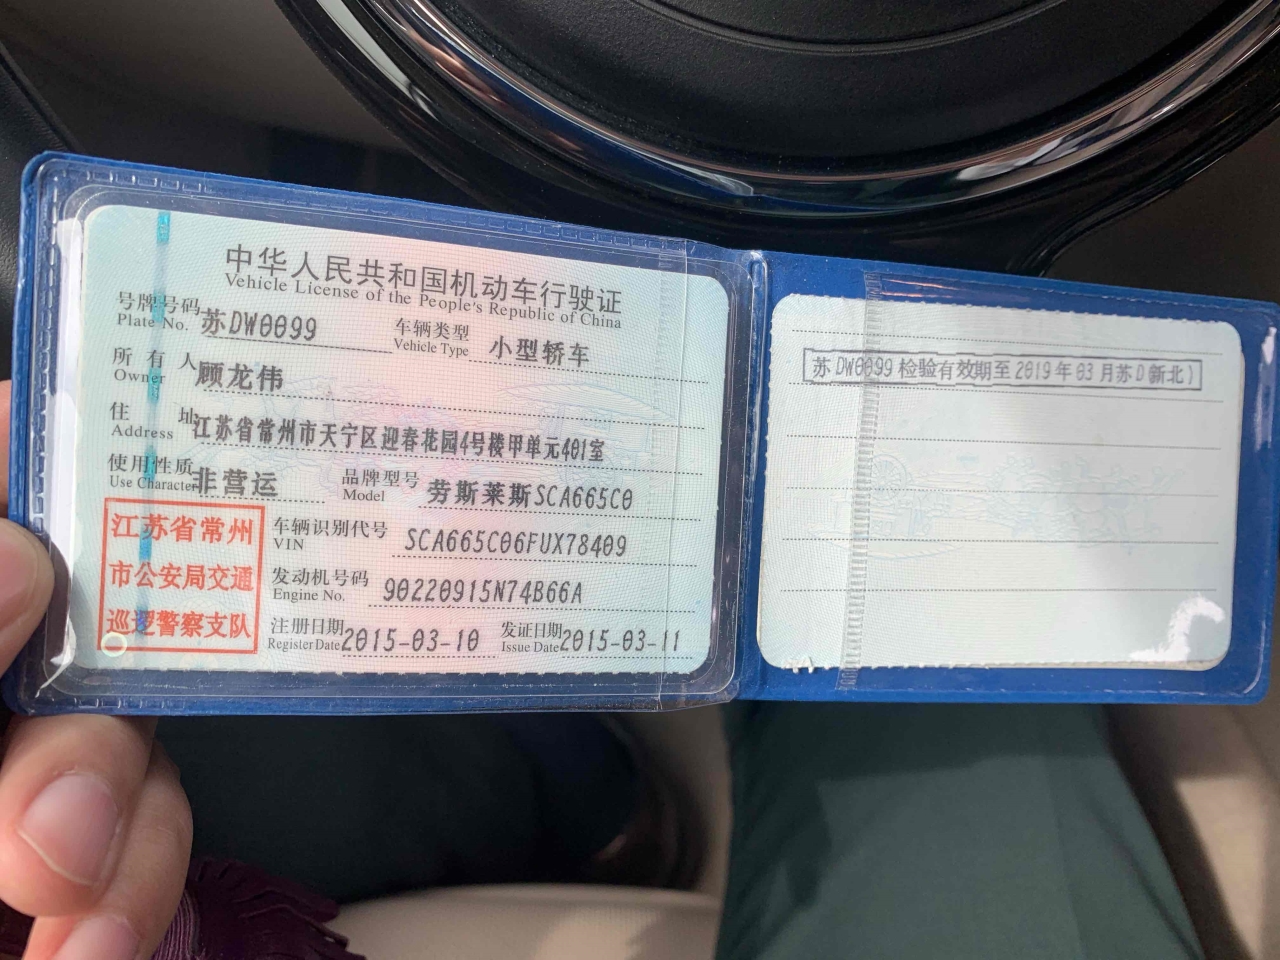 中华人民共和国机动车行驶证
Vehicle License of the People's Republic of China
号牌号码 苏DW0099 车辆类型 小型轿车
Plate No. Vehicle Type
所有人 顾龙伟
Owner
住址 江苏省常州市天宁区迎春花园4号楼甲单元401室
Address
使用性质 非营运 品牌型号 劳斯莱斯SCA665C0
Use Character Model
江苏省常州
市公安局交通
巡逻警察支队
车辆识别代号 SCA665C06FUX78409
VIN
发动机号码 90220915N74B66A
Engine No.
注册日期 2015-03-10 发证日期 2015-03-11
Register Date Issue Date
苏DW0099检验有效期至2019年03月苏D(新北)